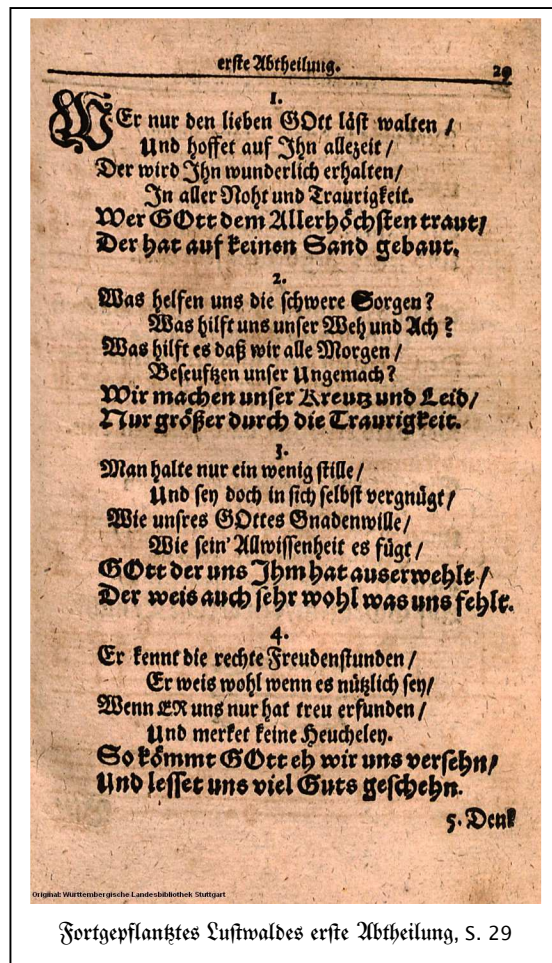 erste Abtheilung. 29
1.
WEr nur den lieben GOtt läst walten /
Und hoffet auf Jhn allezeit /
Der wird Jhn wunderlich erhalten /
Jn aller Noht und Traurigkeit.
Wer GOtt dem Allerhöchsten traut /
Der hat auf keinen Sand gebaut.
2.
Was helfen uns die schwere Sorgen?
Was hilft uns unser Weh und Ach?
Was hilft es daß wir alle Morgen /
Beseuftzen unser Ungemach?
Wir machen unser Kreutz und Leid /
Nur größer durch die Traurigkeit.
3.
Man halte nur ein wenig stille /
Und sey doch in sich selbst vergnügt /
Wie unsres GOttes Gnadenwille /
Wie sein' Allwissenheit es fügt /
GOtt der uns Jhm hat auserwehlt /
Der weis auch sehr wohl was uns fehlt.
4.
Er kennt die rechte Freudenstunden /
Er weis wohl wenn es nützlich sey /
Wenn ER uns nur hat treu erfunden /
Und merket keine Heucheley.
So kömmt GOtt eh wir uns versehn /
Und lesset uns viel Guts geschehn.
5. Denk
Original: Württembergische Landesbibliothek Stuttgart
Fortgepflantztes Lustwaldes erste Abtheilung, S. 29